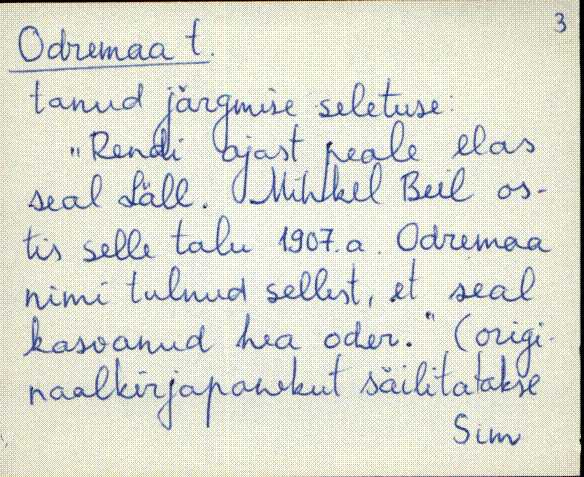 3
Odremaa t.
tanud järgmise seletuse:
"Rendi ajast peale elas
seal Läll. Mihkel Beil os-
tis selle talu 1907. a. Odremaa
nimi tulnud sellest, et seal
kasvanud hea oder." (origi-
naalkirjapanekut säilitatakse
Sim